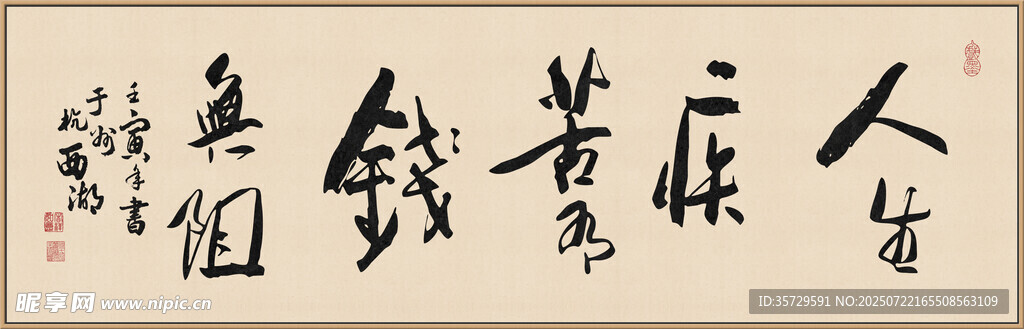 人生
疾
苦
錢
無阻
壬寅年書
于杭州西湖
昵享网 www.nipic.cn
ID:35729591 NO:20250722165508563109